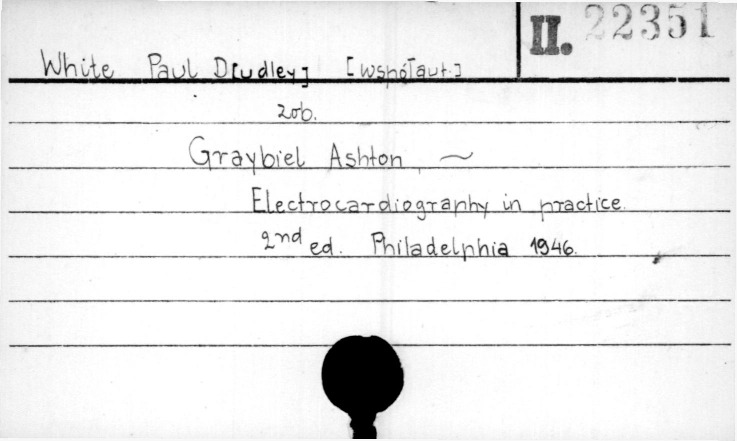 II. 22351
White Paul D[udley] [współaut.]
zob.
Graybiel Ashton, ~
Electrocardiography in practice.
2nd ed. Philadelphia 1946.